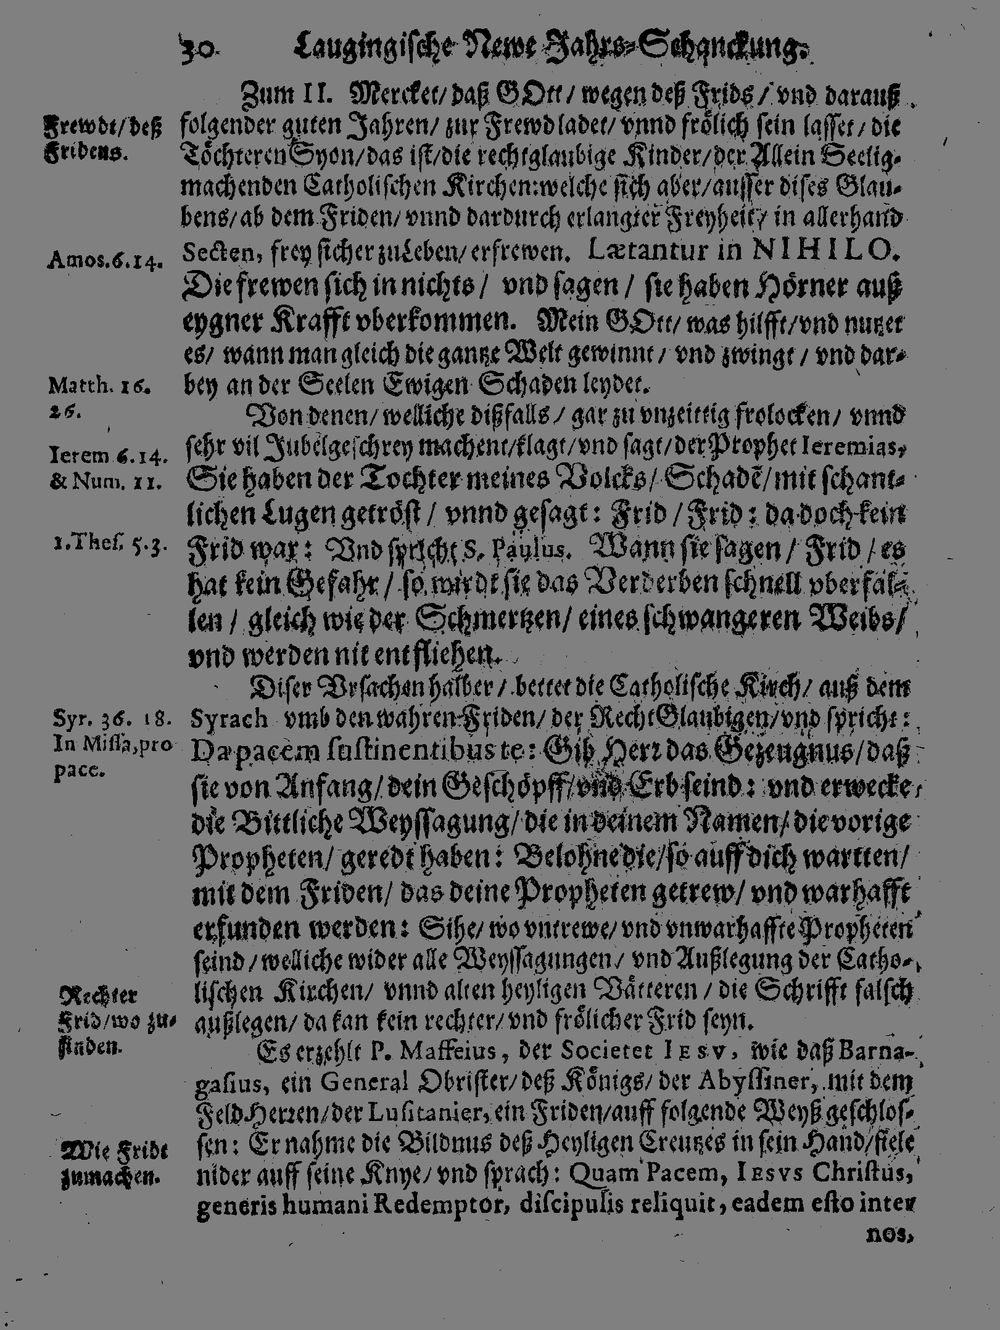 30. Laugingische Newe Jahrs-Schanckung.
Zum II. Mercket/ daß GOtt/ wegen deß Frids/ vnd darauß
Frewdt/ deß
Fridens.
folgender guten Jahren/ zur Frewd ladet/ vnnd frölich sein lasset/ die
Töchteren Syon/ das ist/ die rechtglaubige Kinder/ der Allein Seelig-
machenden Catholischen Kirchen: welche sich aber/ ausser dises Glau-
bens/ ab dem Friden/ vnnd dardurch erlangter Freyheit/ in allerhand
Amos. 6. 14.
Secten, frey sicher zu Leben/ erfrewen. Lætantur in NIHILO.
Die frewen sich in nichts/ vnd sagen/ sie haben Hörner auß
eygner Krafft vberkommen. Mein GOtt/ was hilfft/ vnd nutzet
es/ wann man gleich die gantze Welt gewinnt/ vnd zwingt/ vnd dar-
Matth. 16.
26.
bey an der Seelen Ewigen Schaden leydet.
Von denen/ welliche dißfalls/ gar zu vnzeittig frolocken/ vnnd
Ierem 6. 14.
& Num. 11.
sehr vil Jubelgeschrey machent/ klagt/ vnd sagt/ der Prophet Ieremias,
Sie haben der Tochter meines Volcks/ Schadē/ mit schant-
lichen Lugen getröst/ vnnd gesagt: Frid/ Frid: da doch kein
1. Thes. 5. 3.
Frid war: Vnd spricht S. Paulus. Wann sie sagen/ Frid/ es
hat kein Gefahr/ so wirdt sie das Verderben schnell vberfal-
len/ gleich wie der Schmertzen/ eines schwangeren Weibs/
vnd werden nit entfliehen.
Diser Vrsachen halber/ bettet die Catholische Kirch/ auß dem
Syr. 36. 18.
In Missa, pro
pace.
Syrach vmb den wahren Friden/ der RechtGlaubigen/ vnd spricht:
Da pacem sustinentibus te: Gib Herr das Gezeugnus/ daß
sie von Anfang/ dein Geschöpff/ vnd Erb seind: vnd erwecke,
die Bittliche Weyssagung/ die in deinem Namen/ die vorige
Propheten/ geredt haben: Belohne die/ so auff dich wartten/
mit dem Friden/ das deine Propheten getrew/ vnd warhafft
erfunden werden: Sihe/ wo vntrewe/ vnd vnwarhaffte Propheten
seind/ welliche wider alle Weyssagungen/ vnd Außlegung der Catho-
Rechter
Frid/ wo zu-
finden.
lischen Kirchen/ vnnd alten heyligen Vätteren/ die Schrifft falsch
außlegen/ da kan kein rechter/ vnd frölicher Frid seyn.
Es erzehlt P. Maffeius, der Societet IESV, wie daß Barna-
gasius, ein General Obrister/ deß Königs/ der Abyssiner, mit dem
FeldHerren/ der Lusitanier, ein Friden/ auff folgende Weyß geschlos-
Wie Fridt
zumachen.
sen: Er nahme die Bildnus deß Heyligen Creutzes in sein Hand/ fiele
nider auff seine Knye/ vnd sprach: Quam Pacem, IESVS Christus,
generis humani Redemptor, discipulis reliquit, eadem esto inter
nos,